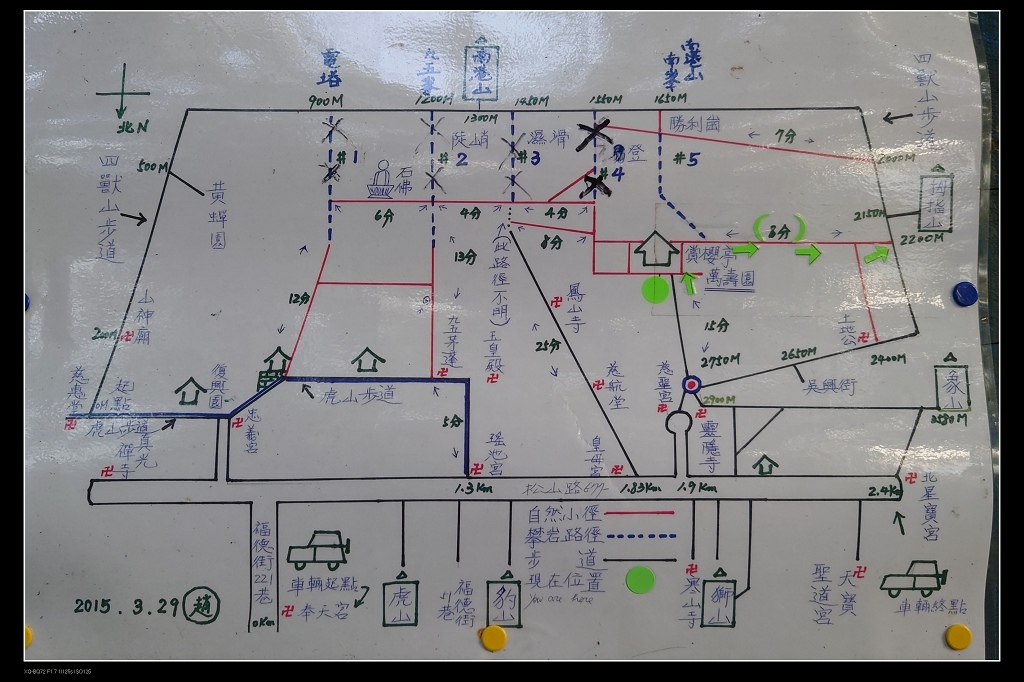 電塔
九五峯
南港山
南港山
南峯
900M
1200M
1300M
1450M
1550M
1650M
四獸山步道
北N
500M
黃蟬園
四獸山步道
#1
石佛
陡峭
#2
濕滑
#3
#4
#5
勝利崗
7分
2000M
拇指山
2150M
2200M
6分
4分
4分
8分
13分
(此路徑不明)
(8分)
賞櫻亭
萬壽園
山神廟
200M
12分
九五茅蓬
玉皇殿
鳳山寺
25分
15分
土地公
慈惠堂
起點
0M
復興園
虎山步道
慈航堂
慈聖宮
2750M
2650M
2400M
吳興街
象山
2580M
2900M
虎山步道
真光禪寺
忠義宮
5分
瑤池宮
皇母宮
靈隱寺
北星寶宮
1.3Km
松山路
1.83Km
1.9Km
2.4Km
福德街221巷
0Km
車輛起點
奉天宮
虎山
福德街
巷
豹山
自然小徑
攀岩路徑
步道
現在位置
you are here
寒山寺
獅山
聖道宮
天寶
車輛終點
2015.3.29 趙
XQ-BQ72 F1.7 1/125s ISO125